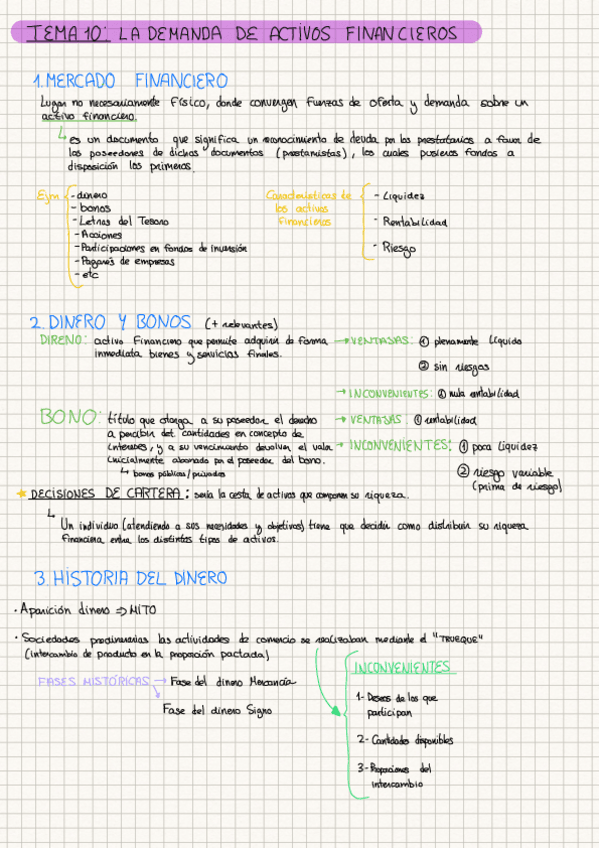 TEMA 10: LA DEMANDA DE ACTIVOS FINANCIEROS
1. MERCADO FINANCIERO
Lugar no necesariamente físico, donde convergen fuerzas de oferta y demanda sobre un
activo financiero.
es un documento que significa un reconocimiento de deuda por los prestatarios a favor de
los poseedores de dichos documentos (prestamistas), los cuales pusieron fondos a
disposición los primeros.
Ejm
- dinero
- bonos
- Letras del Tesoro
- Acciones
- Participaciones en fondos de inversión
- Pagarés de empresas
- etc
Características de
los activos
financieros
- Liquidez
- Rentabilidad
- Riesgo
2. DINERO Y BONOS (+ relevantes)
DIRENO: activo financiero que permite adquirir de forma
inmediata bienes y servicios finales.
→ VENTAJAS: ① plenamente líquido
② sin riesgos
→ INCONVENIENTES: ① nula rentabilidad
BONO: título que otorga a su poseedor el derecho
a percibir det. cantidades en concepto de
intereses, y a su vencimiento devolver el valor
inicialmente abonado por el poseedor del bono.
↳ bonos públicos/privados
→ VENTAJAS: ① rentabilidad
→ INCONVENIENTES: ① poca liquidez
② riesgo variable
(prima de riesgo)
★ DECISIONES DE CARTERA: sería la cesta de activos que componen su riqueza.
↳ Un individuo (atendiendo a sus necesidades y objetivos) tiene que decidir como distribuir su riqueza
financiera entre los distintos tipos de activos.
3. HISTORIA DEL DINERO
· Aparición dinero ⇒ HITO
· Sociedades predinerarias las actividades de comercio se realizaban mediante el "TRUEQUE"
(intercambio de producto en la proporción pactada)
FASES HISTÓRICAS → Fase del dinero Mercancía
Fase del dinero Signo
INCONVENIENTES
1- Deseos de los que
participan
2- Cantidades disponibles
3- Proporciones del
intercambio